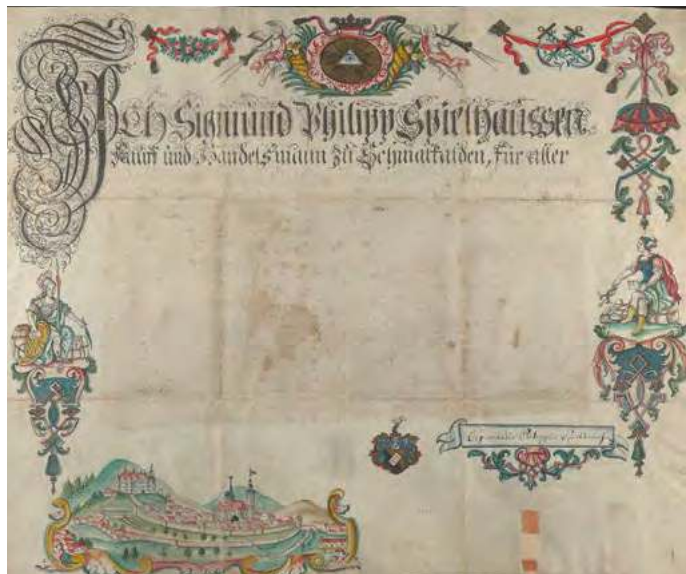 Ich Sigmund Philipp Spielhaussen,
Kauff und Handelsmann zu Schmalkalden, für aller